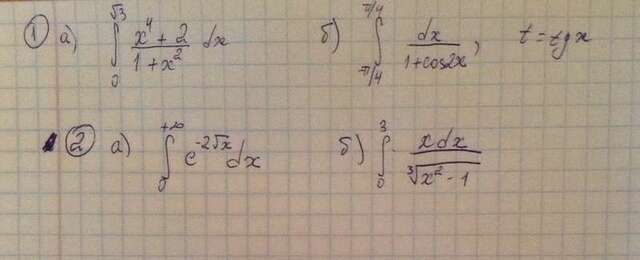 ① а) ∫₀^√3 (x⁴ + 2)/(1 + x²) dx б) ∫_{-π/4}^{π/4} dx/(1 + cos2x), t = tg x
② а) ∫₀^{+∞} e^{-2√x} dx б) ∫₀³ x dx/∛(x² - 1)